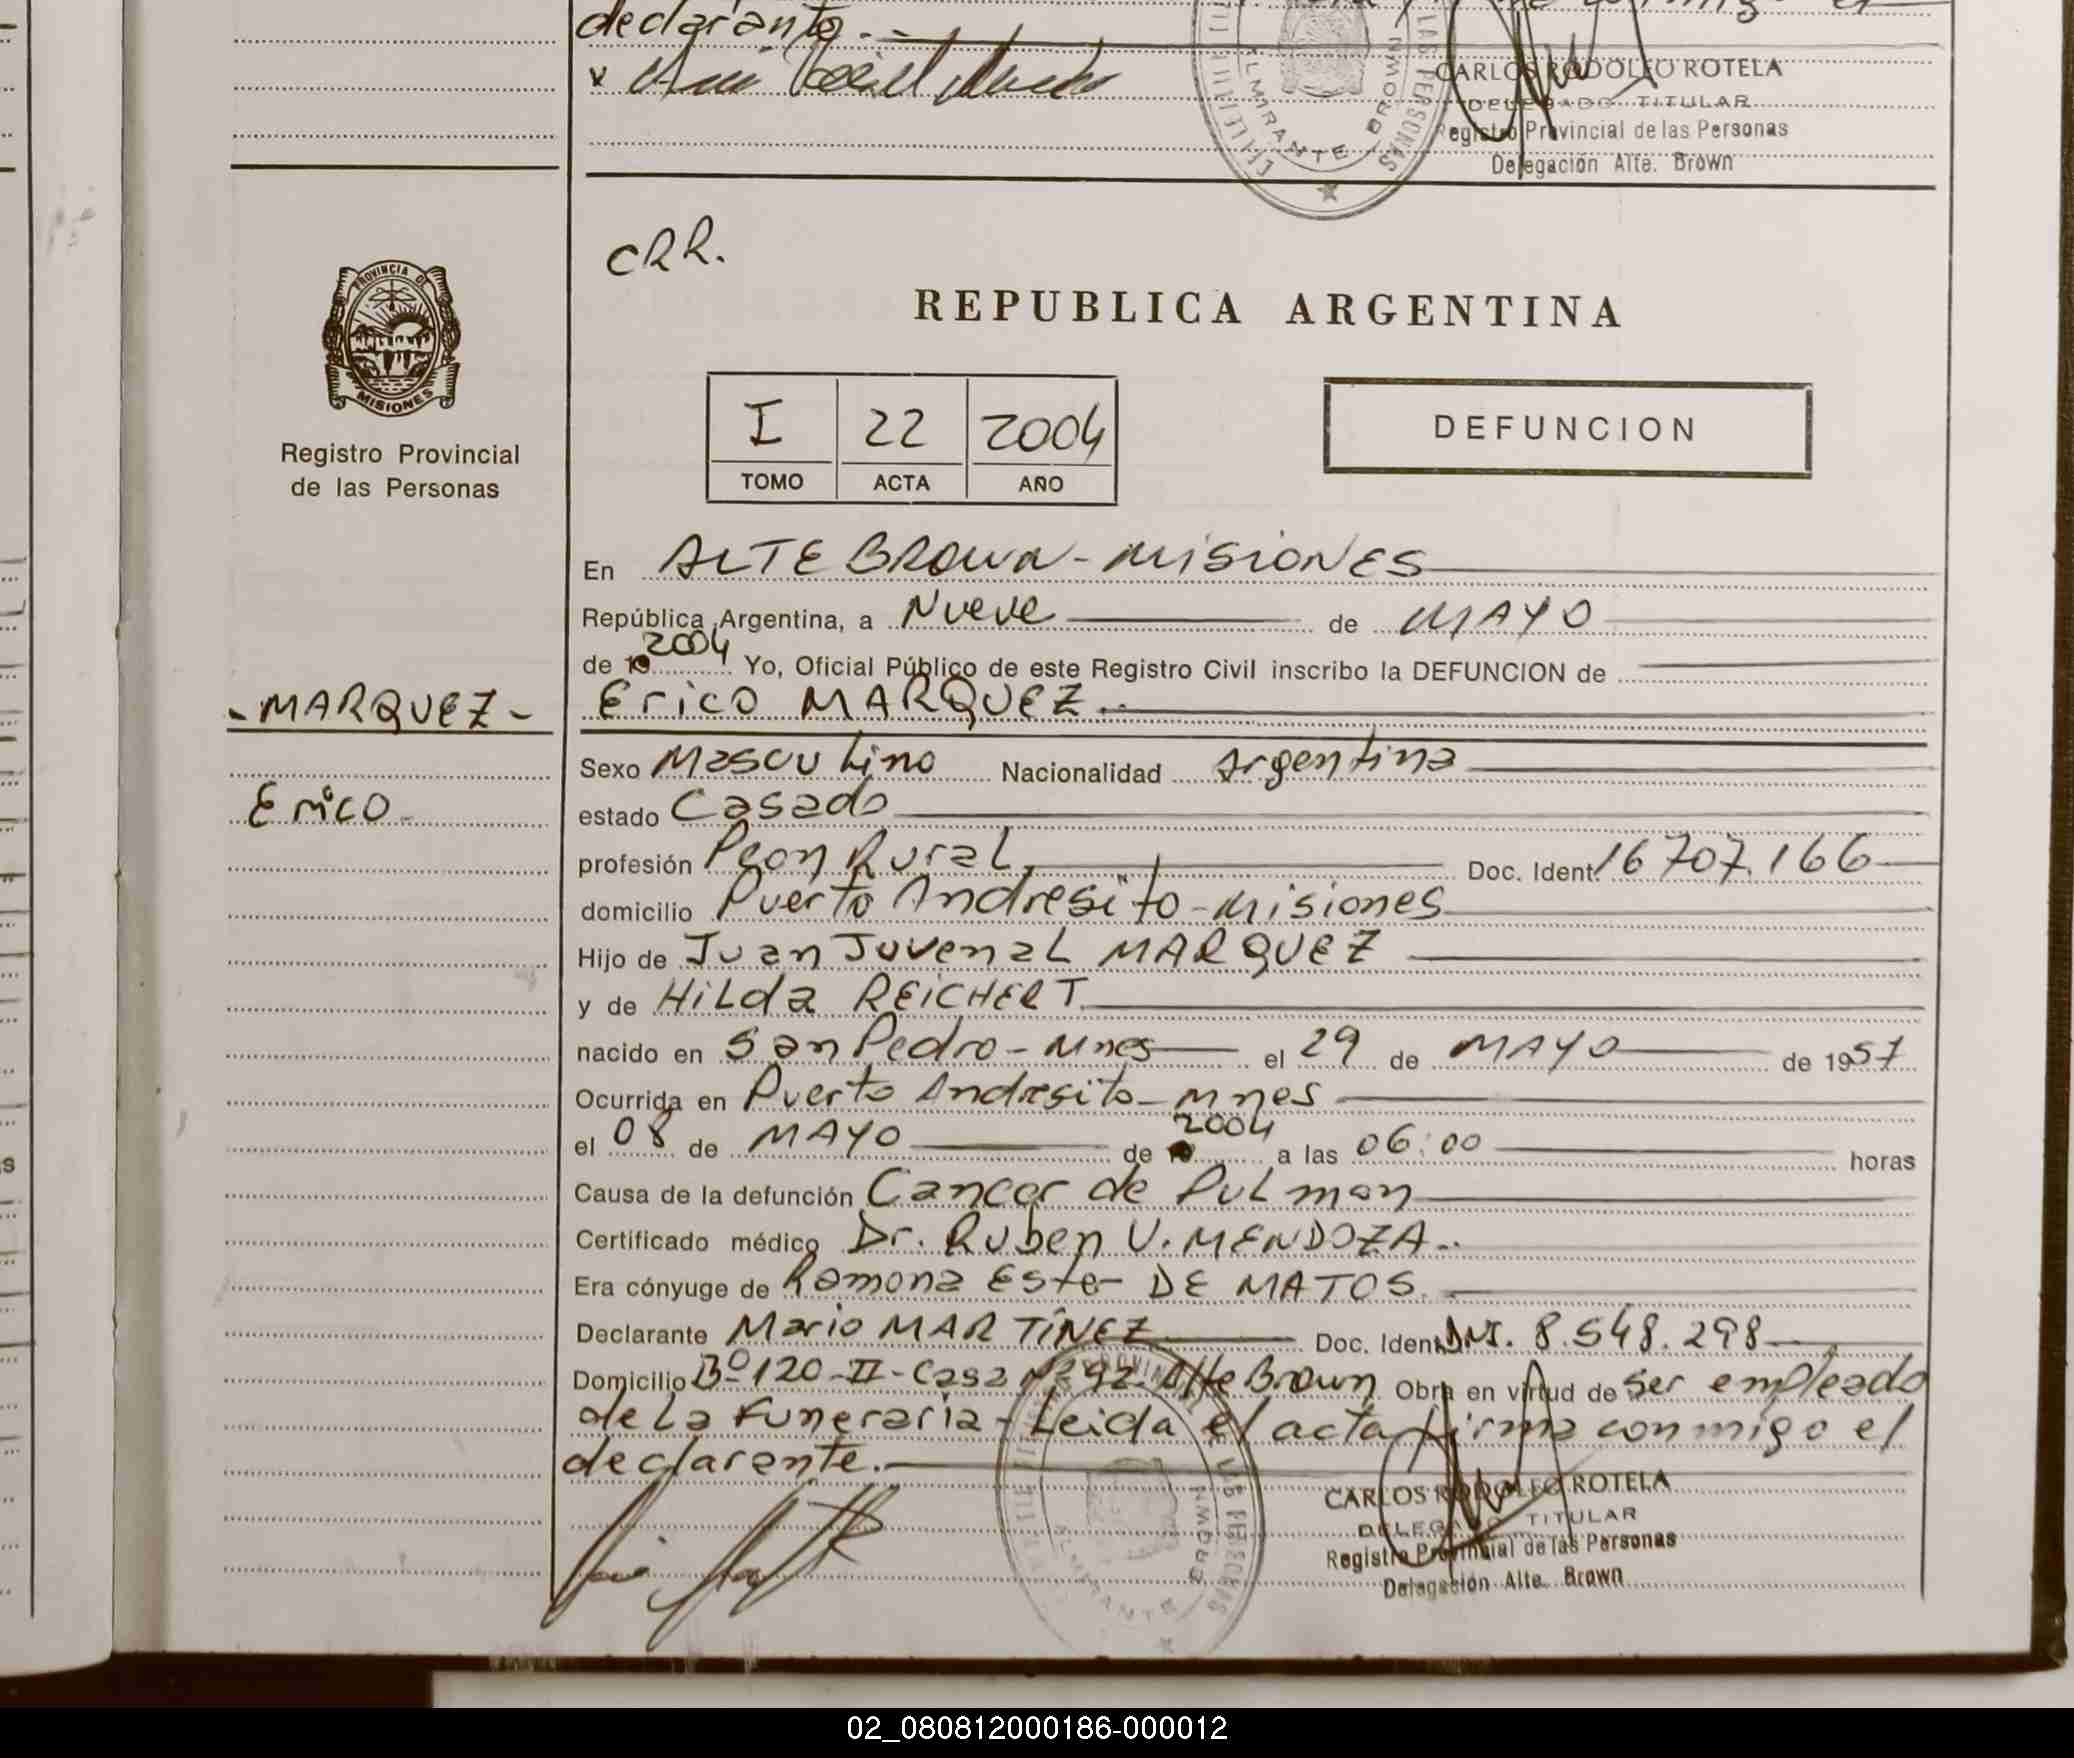 declarante.-
CARLOS RODOLFO ROTELA
DELEGADO TITULAR
Registro Provincial de las Personas
Delegación Alte. Brown
ALMIRANTE BROWN
LAS PERSONAS
CRR.
PROVINCIA DE
MISIONES
Registro Provincial
de las Personas
REPUBLICA ARGENTINA
I 22 2004
TOMO ACTA AÑO
DEFUNCION
En ALTE BROWN - MISIONES
República Argentina, a Nueve de MAYO
de 19 2004 Yo, Oficial Público de este Registro Civil inscribo la DEFUNCION de
- MARQUEZ -
Erico MARQUEZ.-
Sexo Masculino Nacionalidad Argentina
Erico -
estado Casado
profesión Peon Rural Doc. Ident. 16 707.166
domicilio Puerto Andresito - Misiones
Hijo de Juan Juvenal MARQUEZ
y de Hilda REICHERT
nacido en San Pedro - Mnes el 29 de MAYO de 1957
Ocurrida en Puerto Andresito - Mnes
el 08 de MAYO de 19 2004 a las 06:00 horas
Causa de la defunción Cancer de Pulmon
Certificado médico Dr. Ruben V. MENDOZA.-
Era cónyuge de Ramona Ester DE MATOS.
Declarante Mario MARTÍNEZ Doc. Ident. DNI. 8.548.298
Domicilio Bº 120-II- Casa Nº 92. Alte Brown Obra en virtud de ser empleado
de la Funeraria - Leida el acta firma conmigo el
declarante.-
CARLOS RODOLFO ROTELA
DELEGADO TITULAR
Registro Provincial de las Personas
Delegación Alte. Brown
ALMIRANTE BROWN
LAS PERSONAS
02_080812000186-000012